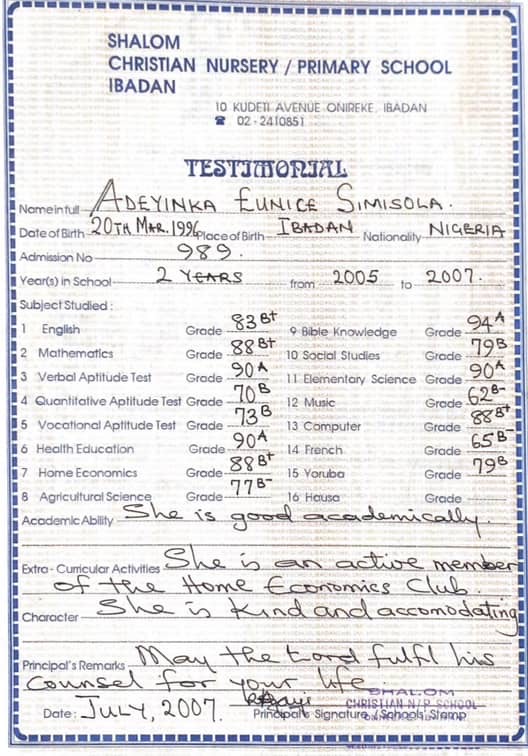 SHALOM
CHRISTIAN NURSERY / PRIMARY SCHOOL
IBADAN
10 KUDETI AVENUE ONIREKE, IBADAN
☎ 02-2410851
TESTIMONIAL
Name in full ADEYINKA EUNICE SIMISOLA.
Date of Birth 20TH MAR. 1996 Place of Birth IBADAN Nationality NIGERIA
Admission No 989.
Year(s) in School 2 YEARS from 2005 to 2007.
Subject Studied :
1 English Grade 83 B+ 9 Bible Knowledge Grade 94 A
2 Mathematics Grade 88 B+ 10 Social Studies Grade 79 B
3 Verbal Aptitude Test Grade 90 A 11 Elementary Science Grade 90 A
4 Quantitative Aptitude Test Grade 70 B 12 Music Grade 62 B-
5 Vocational Aptitude Test Grade 73 B 13 Computer Grade 88 B+
6 Health Education Grade 90 A 14 French Grade 65 B-
7 Home Economics Grade 88 B+ 15 Yoruba Grade 79 B
8 Agricultural Science Grade 77 B- 16 Hausa Grade
Academic Ability She is good academically.
Extra - Curricular Activities She is an active member
of the Home Economics Club.
Character She is kind and accomodating
Principal's Remarks May the Lord fulfil his
counsel for your life.
SHALOM
CHRISTIAN N/P SCHOOL
Date: JULY, 2007. Principal's Signature / School's Stamp